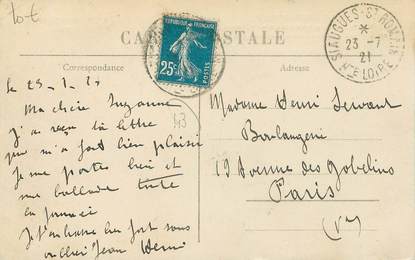 10-€
CARTE POSTALE
Correspondance
Adresse
REPUBLIQUE FRANÇAISE
25c
POSTES
SIAUGUES-ST ROMAIN
*
23-7
21
HTE LOIRE
43
Ma chère Suzanne
J'ai reçu ta lettre
qui m'a fait bien plaisir
Je me portes bien et
me ballade toute
la journée
Je t'embrasse bien fort sans
oublier Jean Henri
Madame Henri
Boulangerie
19 Avenue des Gobelins
Paris
(Vme)